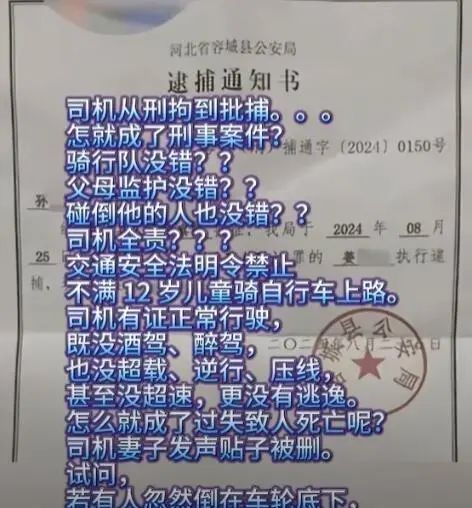 河北省容城县公安局
逮捕通知书
司机从刑拘到批捕。。。
怎就成了刑事案件？
捕通字〔2024〕0150号
骑行队没错？？
父母监护没错？？
孙
碰倒他的人也没错？？
我局于 2024 年 08 月
司机全责？？？
25
罪的 姜 执行逮
交通安全法明令禁止
捕
不满 12 岁儿童骑自行车上路。
司机有证正常行驶，
既没酒驾、醉驾，
也没超载、逆行、压线，
甚至没超速，更没有逃逸。
怎么就成了过失致人死亡呢？
司机妻子发声贴子被删。
试问，
若有人忽然倒在车轮底下，